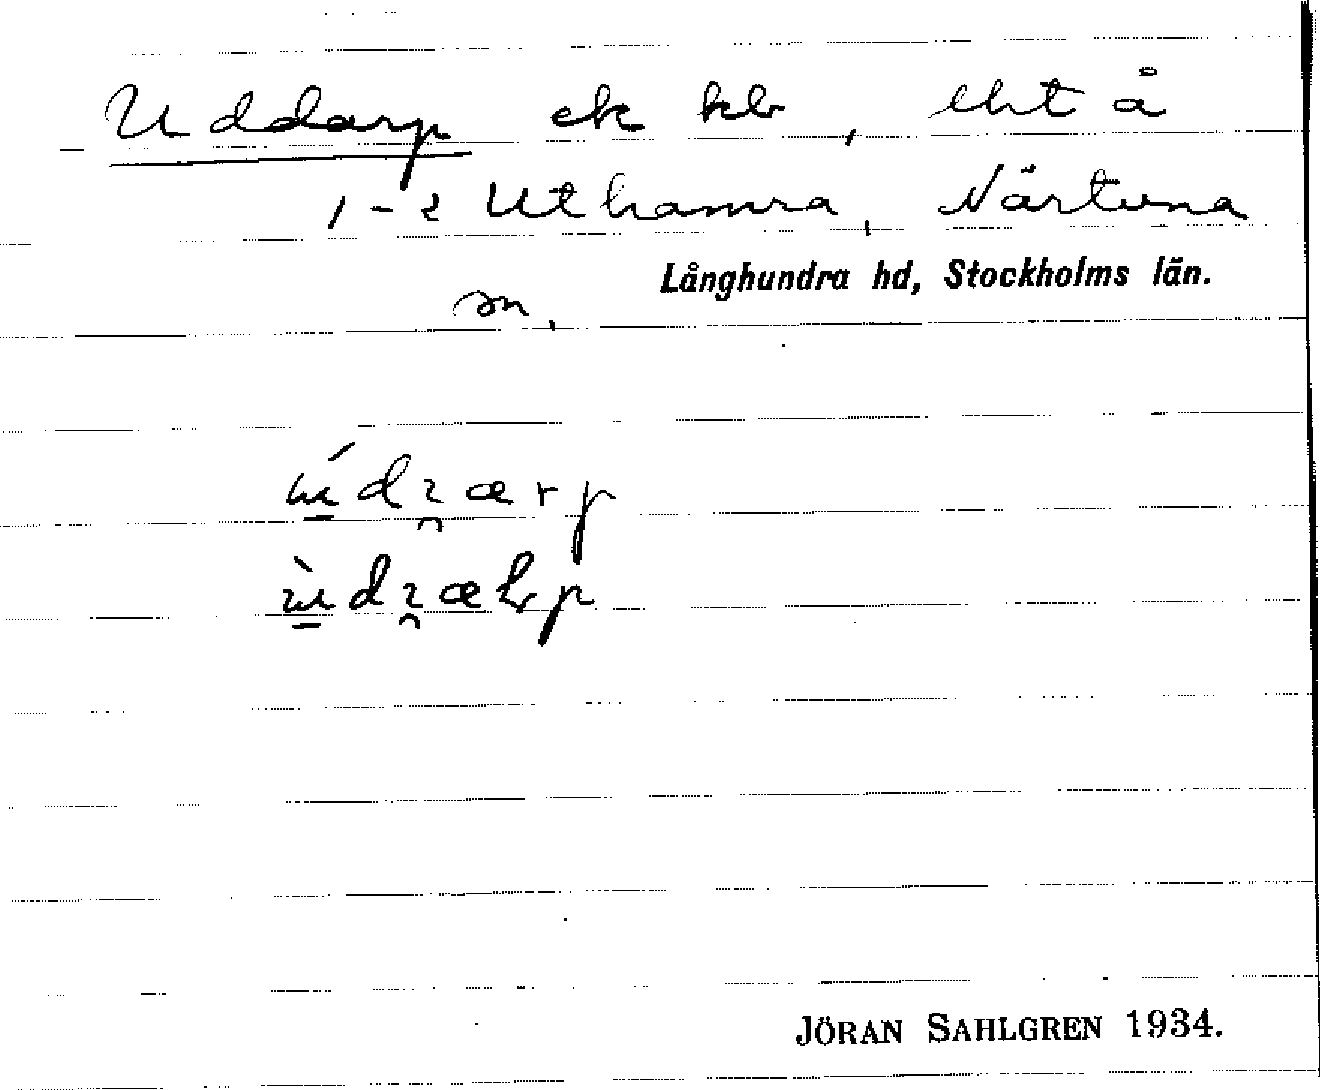 Uddarp ek kb, lht å
1-2 Uthamra, Närtuna
Långhundra hd, Stockholms län.
sn.
JÖRAN SAHLGREN 1934.